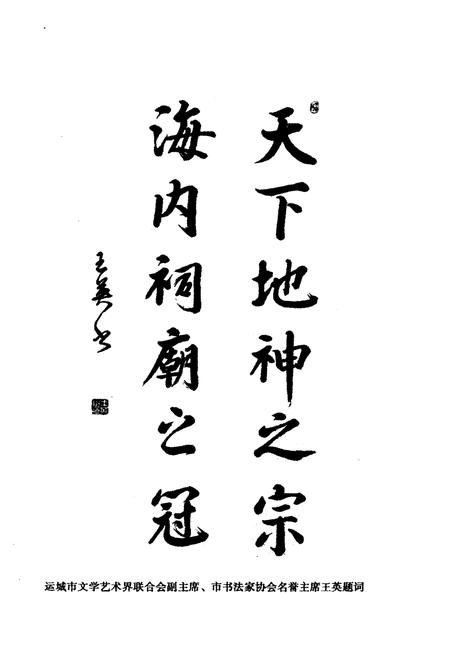 天下地神之宗
海内祠廟之冠
王英书
运城市文学艺术界联合会副主席、市书法家协会名誉主席王英题词